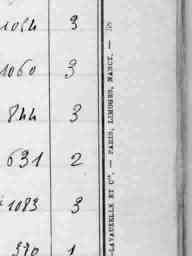 1060 3
844 3
631 2
1083 3
370 1
-LAVAUZELLE ET Cie. — PARIS, LIMOGES, NANCY. —